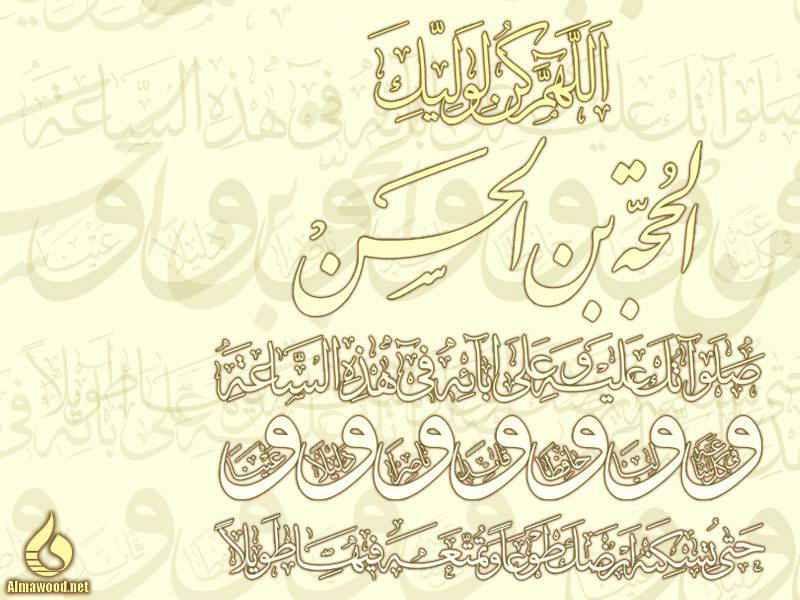 اَللّهُمَّ كُنْ لِوَلِيِّكَ
الحُجَّةِ بْنِ الحَسَنِ
صَلَواتُكَ عَلَيْهِ وَ عَلى آبائِهِ في هذِهِ السّاعَةِ
وَ في كُلِّ ساعَةٍ وَلِيّاً وَ حافِظاً وَ قائِداً وَ ناصِراً وَ دَليلاً وَ عَيْناً
حَتّى تُسْكِنَهُ أَرْضَكَ طَوْعاً وَ تُمَتِّعَهُ فيها طَويلاً
Almawood.net